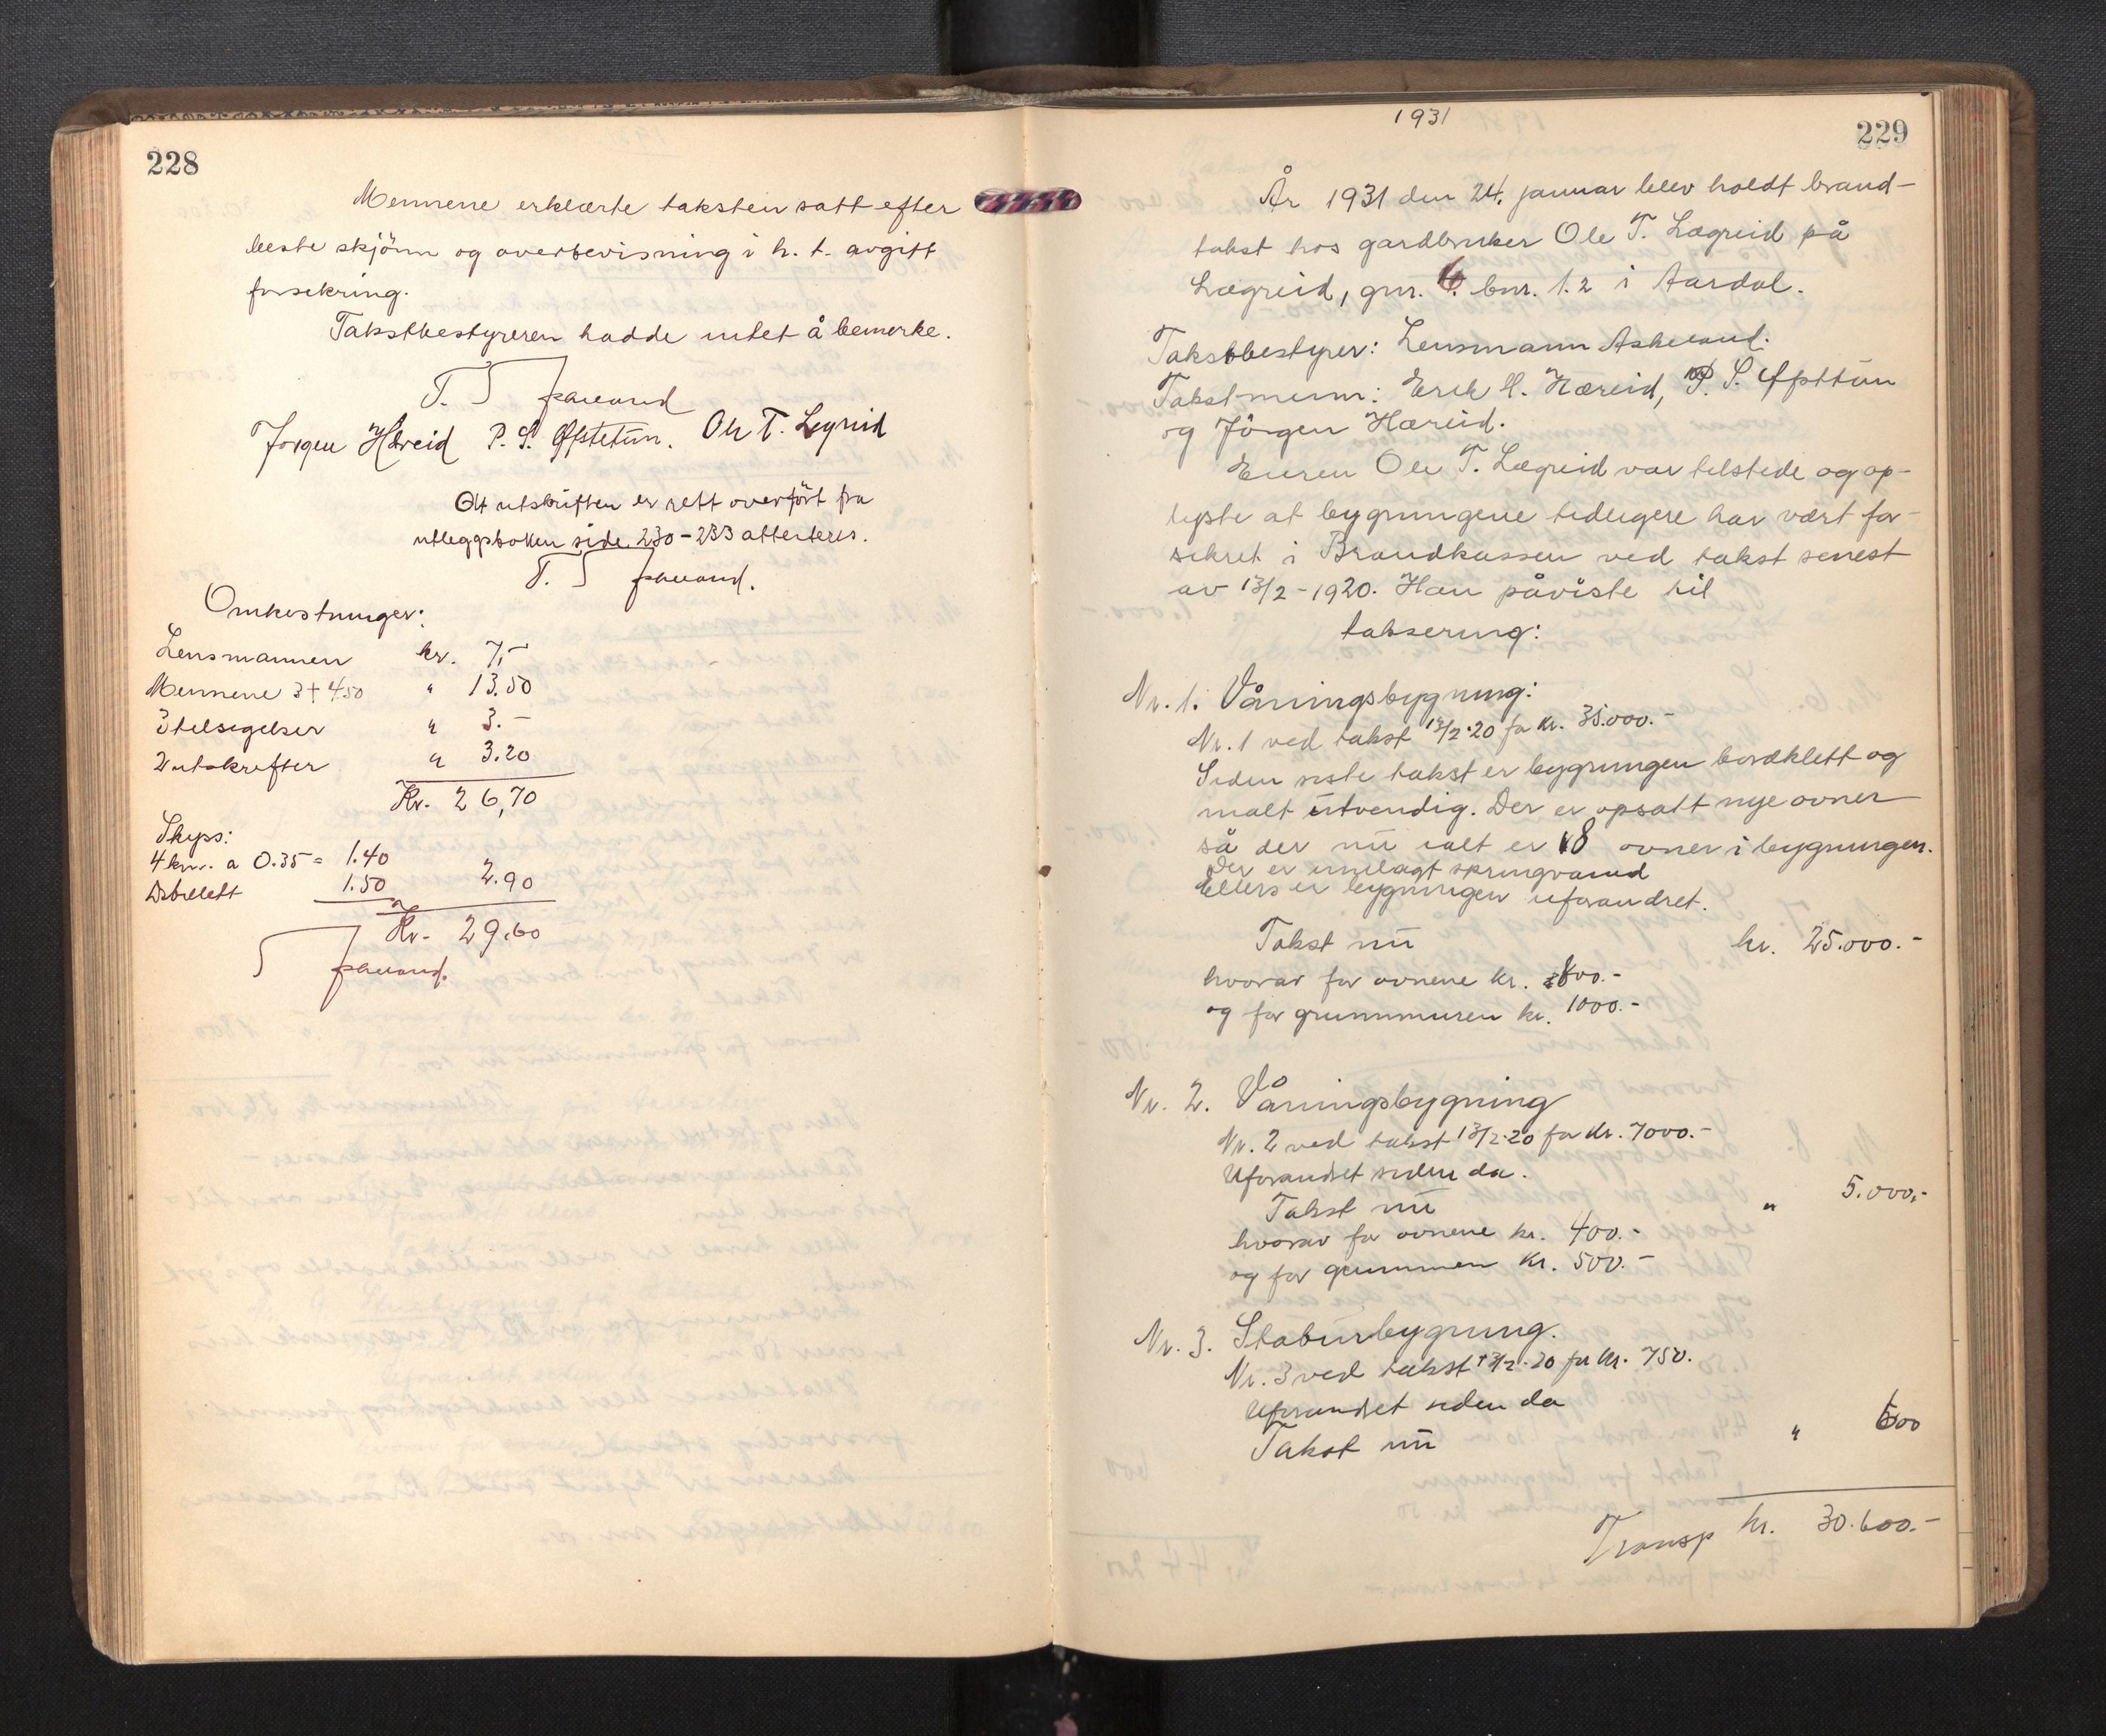 228
Mennene erklærte taksten satt efter
beste skjönn og overbevisning i h. t. avgitt
forsikring.
Takstbestyreren hadde intet å bemerke.
T.
Jørgen Hæreid P. S. Offstetun. Ole T. Legreid
At utskriften er rett overfört fra
utleggsboken side 230-233 attesteres.
T.
Omkostninger:
Lensmannen kr. 7,-
Mennene 3+450 " 13.50
3 tilsigelser " 3.-
2 utskrifter " 3.20
Kr. 26,70
Skyss:
4 km. a 0.35 = 1.40
1.50 2.90
Kr. 29.60
1931
229
År 1931 den 24. januar blev holdt brand-
takst hos gardbruker Ole T. Lægreid på
Lægreid, gnr. 6. bnr. 1.2 i Aardal.
Takstbestyrer: Lensmann Askeland.
Takstmenn: Erik H. Hæreid, P. S. Offstün
og Jörgen Hæreid.
Eieren Ole T. Lægreid var tilstede og op-
lyste at bygningene tidligere har vært for-
sikret i Brandkassen ved takst senest
av 13/2-1920. Han påviste til
taksering:
Nr. 1. Våningsbygning:
Nr. 1 ved takst 13/2-20 for kr. 35.000.-
Siden siste takst er bygningen bordklett og
malt utvendig. Der er opsatt nye ovner
så der nu ialt er 8 ovner i bygningen.
Der er innlagt springvand
Ellers er bygningen uforandret.
Takst nu kr. 25.000.-
hvorav for ovnene kr. 800.-
og for grunnmuren kr. 1000.-
Nr. 2. Våningsbygning
Nr. 2 ved takst 13/2-20 for kr. 7000.-
Uforandret siden da.
Takst nu " 5.000,-
hvorav for ovnene kr. 400.-
og for grunnmuren kr. 500.-
Nr. 3. Staburbygning.
Nr. 3 ved takst 13/2-20 for kr. 750.
Uforandret siden da
Takst nu " 600
Transp kr. 30.600.-